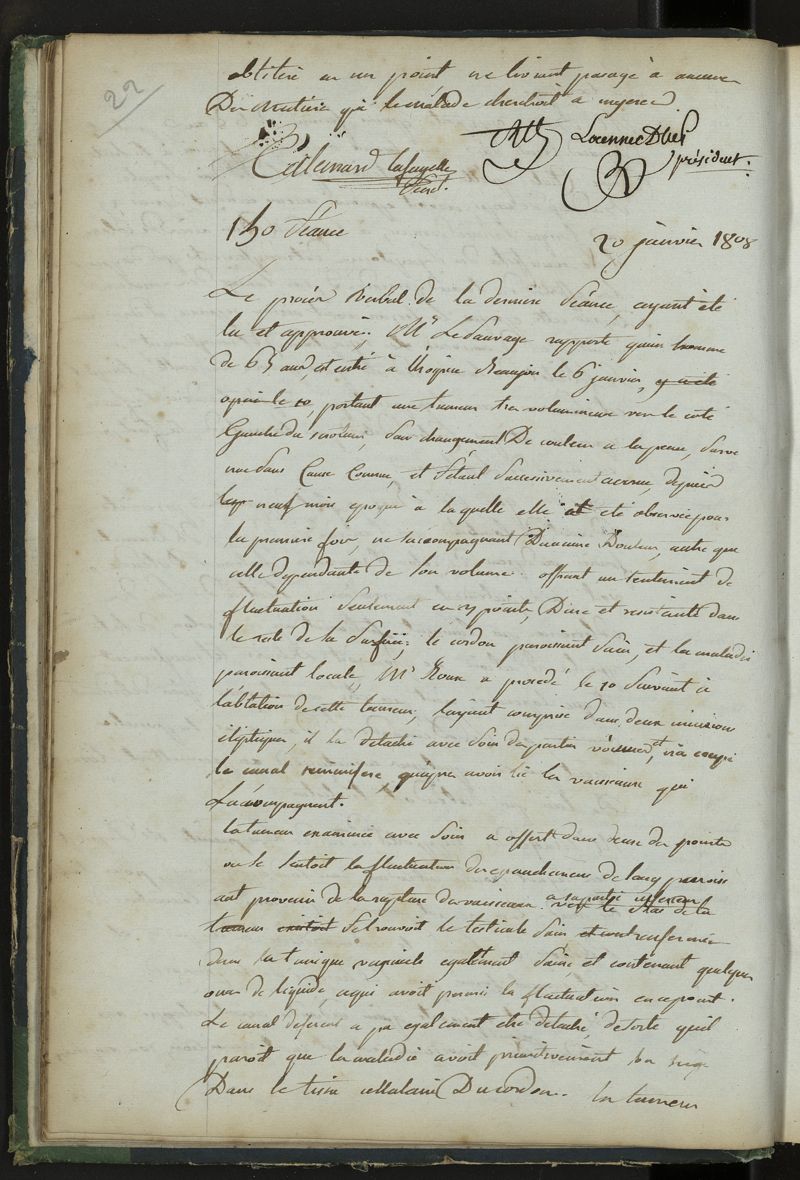 22
oblitéré en un point ne livroit passage à aucune
Des matières que le malade cherchoit a ingerer.
Calemard Lafayette
Secr.
Laennec DMP
président.
150 Séance
20 janvier 1808
Le procès Verbal de la dernière Séance, ayant été
lu et approuvé; Mr Lesauvage rapporte qu'un homme
de 65 ans, est entré à l'hospice Beaujon le 6 janvier, et a été
opéré le 10, portant une tumeur tres volumineuse vers le coté
Gauche du scrotum, Sans changement De couleur a la peau, Surve
nue Sans Cause Connue, et S'étant Successivement accrue, depuis
les neuf mois, epoque à laquelle elle a été observée pour
la premiere fois, ne s'accompagnant D'aucune Douleur, autre que
celle dependante de Son volume. offrant un sentiment de
fluctuation Seulement en 2 points, Dure et resistante dans
le reste de Sa Surface; le cordon paroissant Sain, et la maladie
paroissant locale, Mr Roux a procédé le 10 Suivant à
l'ablation de cette tumeur, l'ayant comprise dans deux incisions
eliptiques, il la detaché avec Soin des parties voisines, et n'a coupé
le canal seminifere, qu'apres avoir lié les vaisseaux qui
L'accompagnent.
la tumeur examinée avec Soin a offert dans deux des points
ou se Sentoit la fluctuation des epanchemens de Sang parois
ant provenir de la rupture des vaisseaux a sa partie inferieure
vers le bas de la
tumeur existoit Se trouvoit le testicule Sain et contrenfermé
dans la tunique vaginale egalement Saine, et contenant quelques
onces de liquide, ce qui avoit produit la fluctuation en ce point.
Le canal déferent a pu egalement etre détaché, de sorte qu'il
paroit que la maladie avoit primitivement son siege
Dans le tissu cellulaire Du cordon. la tumeur